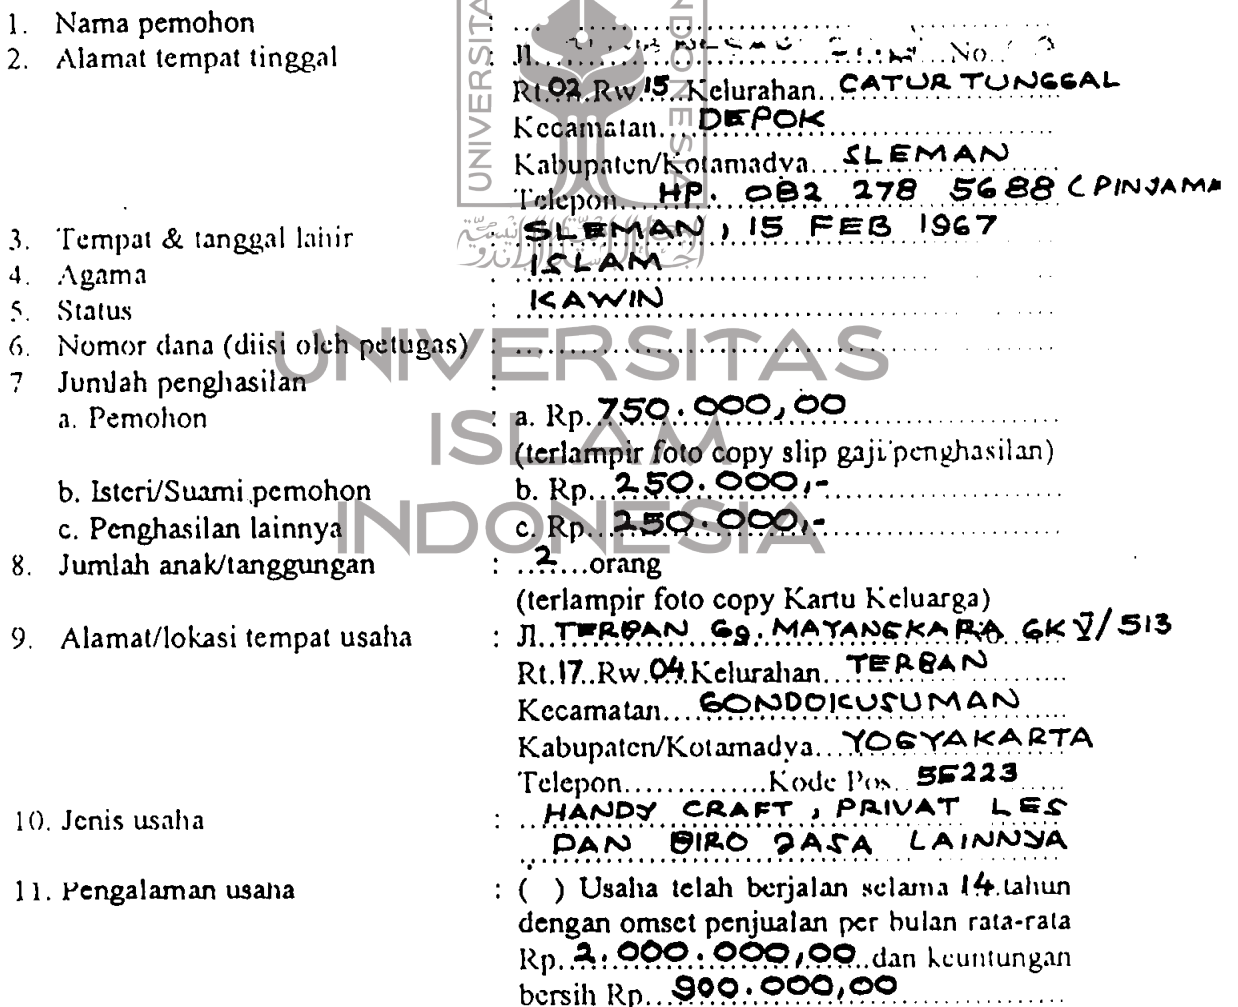 1. Nama pemohon : 
2. Alamat tempat tinggal : Jl. No.
Rt. 02 Rw. 15 Kelurahan CATUR TUNGGAL
Kecamatan DEPOK
Kabupaten/Kotamadya SLEMAN
Telepon HP. 082 278 5688 (PINJAMA
3. Tempat & tanggal lahir : SLEMAN, 15 FEB 1967
4. Agama : ISLAM
5. Status : KAWIN
6. Nomor dana (diisi oleh petugas) :
7 Jumlah penghasilan :
a. Pemohon : a. Rp. 750.000,00
(terlampir foto copy slip gaji/penghasilan)
b. Isteri/Suami pemohon b. Rp. 250.000,-
c. Penghasilan lainnya c. Rp. 250.000,-
8. Jumlah anak/tanggungan : 2 orang
(terlampir foto copy Kartu Keluarga)
9. Alamat/lokasi tempat usaha : Jl. TERBAN Gg. MAYANGKARA GK V/513
Rt. 17 Rw. 04 Kelurahan TERBAN
Kecamatan GONDOKUSUMAN
Kabupaten/Kotamadya YOGYAKARTA
Telepon Kode Pos 55223
10. Jenis usaha : HANDY CRAFT, PRIVAT LES
DAN BIRO JASA LAINNYA
11. Pengalaman usaha : ( ) Usaha telah berjalan selama 14 tahun
dengan omset penjualan per bulan rata-rata
Rp. 2.000.000,00 dan keuntungan
bersih Rp. 900.000,00
UNIVERSITAS
ISLAM
INDONESIA